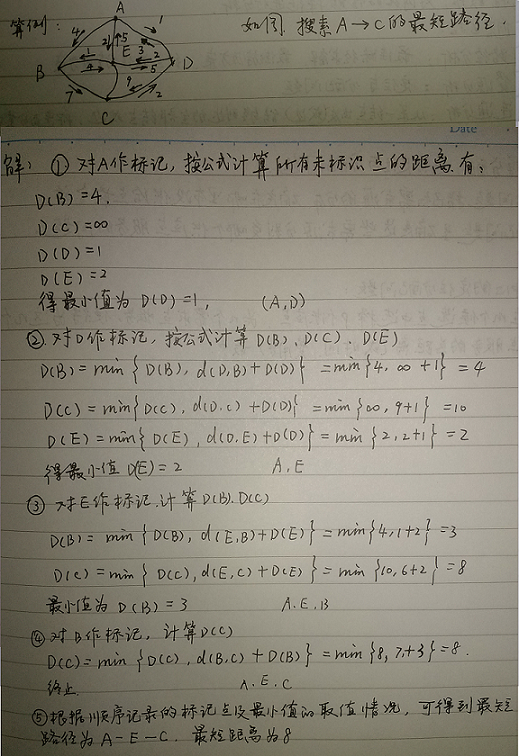 算例:
如何搜索A→C的最短路径.
A
4
1
2
5
3
2
B
1
4
E
5
D
7
9
2
C
Date
解: ①对A作标记,按公式计算所有未标识点的距离有:
D(B)=4.
D(C)=∞
D(D)=1
D(E)=2
得最小值为 D(D)=1, (A,D)
②对D作标记,按公式计算D(B)、D(C)、D(E)
D(B)=min{D(B), d(D,B)+D(D)} =min{4, ∞+1} = 4
D(C)=min{D(C), d(D,C)+D(D)} =min{∞, 9+1} =10
D(E)=min{D(E), d(D,E)+D(D)} =min{2, 2+1} =2
得最小值 D(E)=2 A,E
③对E作标记.计算D(B).D(C)
D(B)= min{D(B), d(E,B)+D(E)} =min{4,1+2} =3
D(C)=min{D(C), d(E,C)+D(E)} =min{10,6+2} =8
最小值为 D(B)=3 A.E.B
④对B作标记,计算D(C)
D(C)=min{D(C), d(B,C)+D(B)} =min{8, 7+3} =8.
终止 A.E.C
⑤根据顺序记录的标记点及最小值的取值情况,可得到最短
路径为A-E-C. 最短距离为8